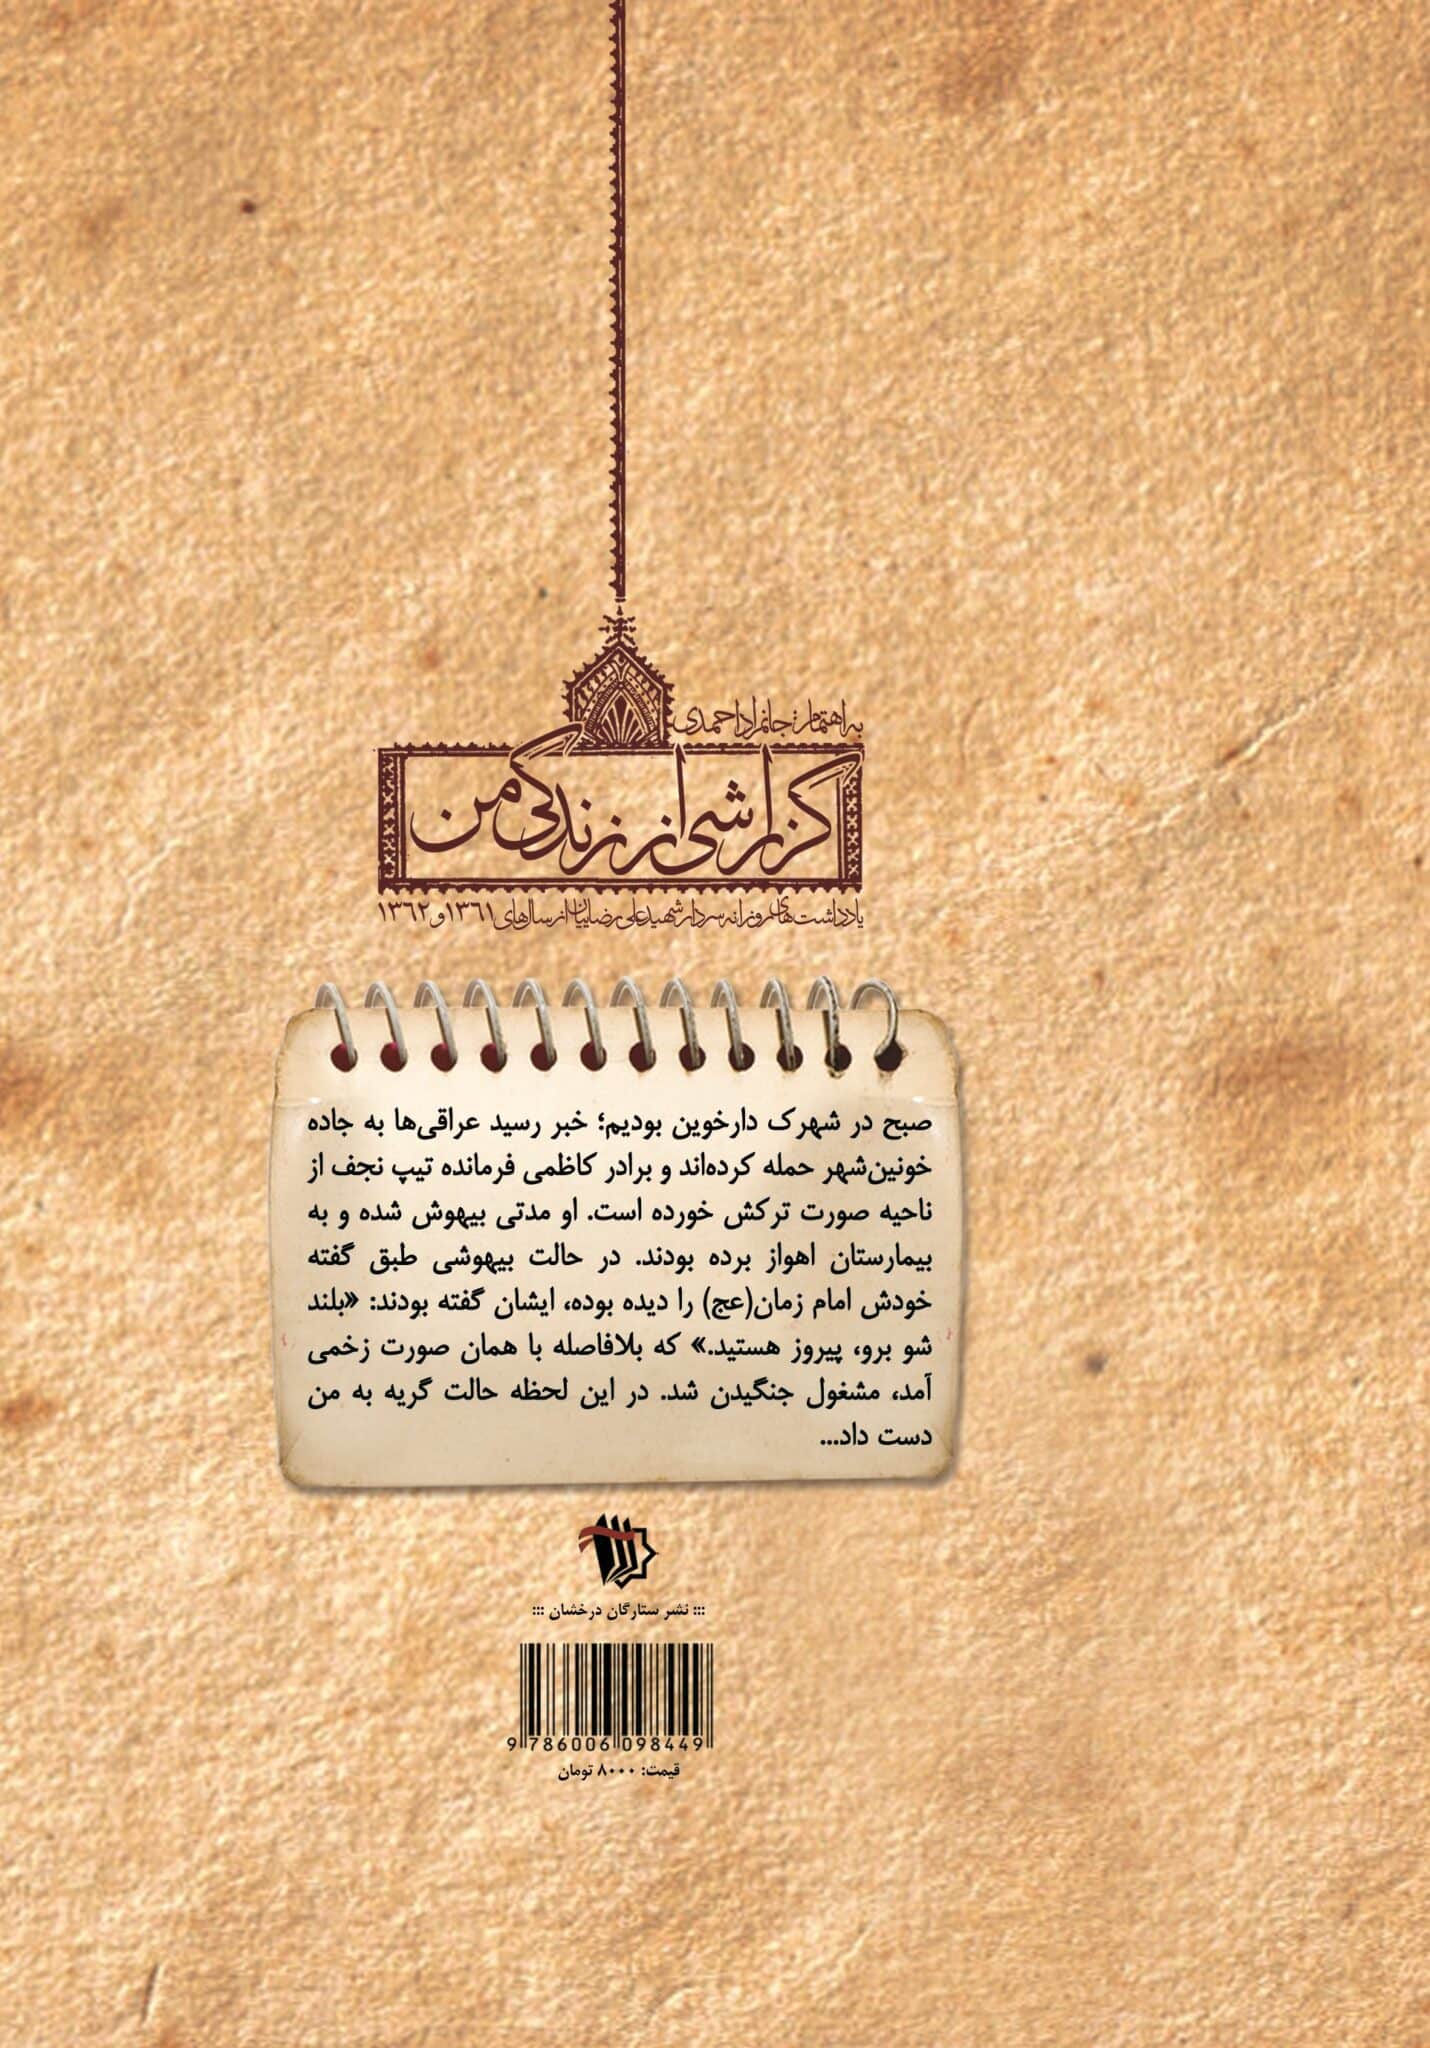 به اهتمام: جانمراد احمدی
گزارشی از زندگی من
یادداشت‌های روزانه سردار شهید علی رضاییان از سال‌های ۱۳۶۱ و ۱۳۶۲
صبح در شهرک دارخوین بودیم؛ خبر رسید عراقی‌ها به جاده
خونین‌شهر حمله کرده‌اند و برادر کاظمی فرمانده تیپ نجف از
ناحیه صورت ترکش خورده است. او مدتی بیهوش شده و به
بیمارستان اهواز برده بودند. در حالت بیهوشی طبق گفته
خودش امام زمان(عج) را دیده بوده، ایشان گفته بودند: «بلند
شو برو، پیروز هستید.» که بلافاصله با همان صورت زخمی
آمد، مشغول جنگیدن شد. در این لحظه حالت گریه به من
دست داد...
::: نشر ستارگان درخشان :::
9 786006 098449
قیمت: ۸۰۰۰ تومان